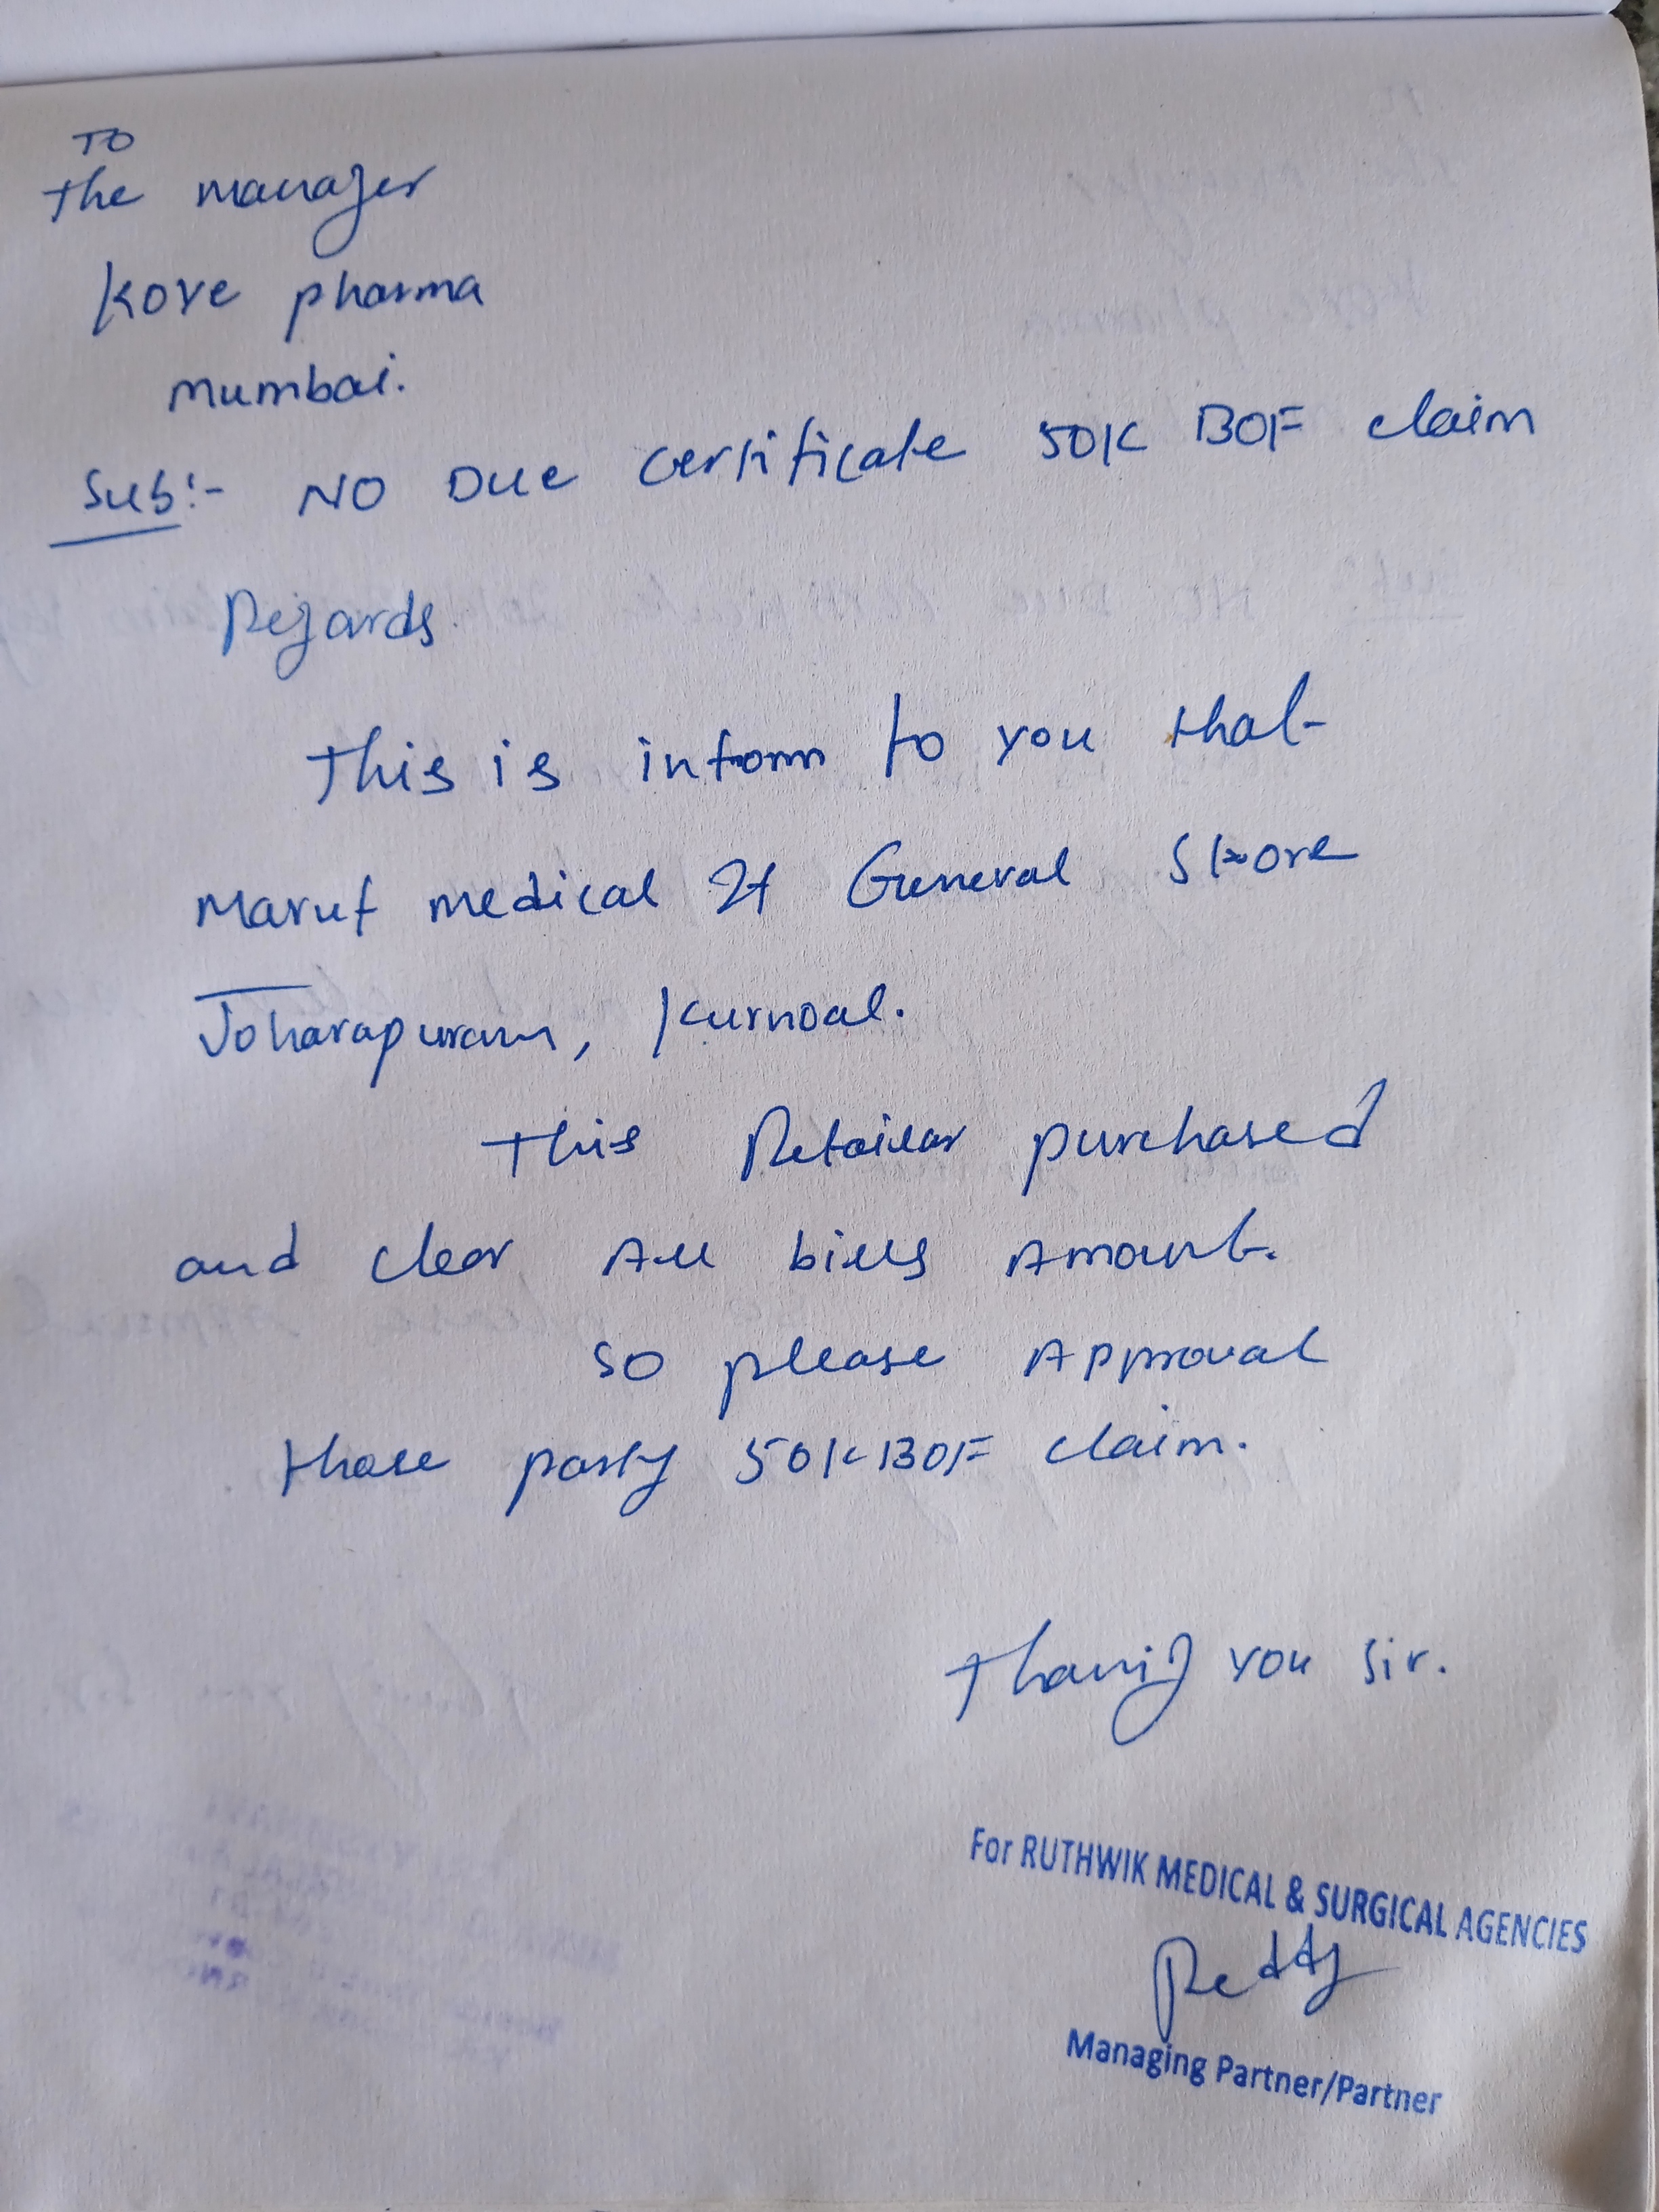 TO
The manager
Kove pharma
mumbai.
Sub:- NO Due certificate 50K BOF claim
Regards
This is inform to you that
Maruf medical & General Store
Joharapuram, Kurnoal.
This Retailar purchased
and clear All bills Amount.
so please Approval
those party 50K BOF claim.
Thanig you sir.
For RUTHWIK MEDICAL & SURGICAL AGENCIES
Reddy
Managing Partner/Partner